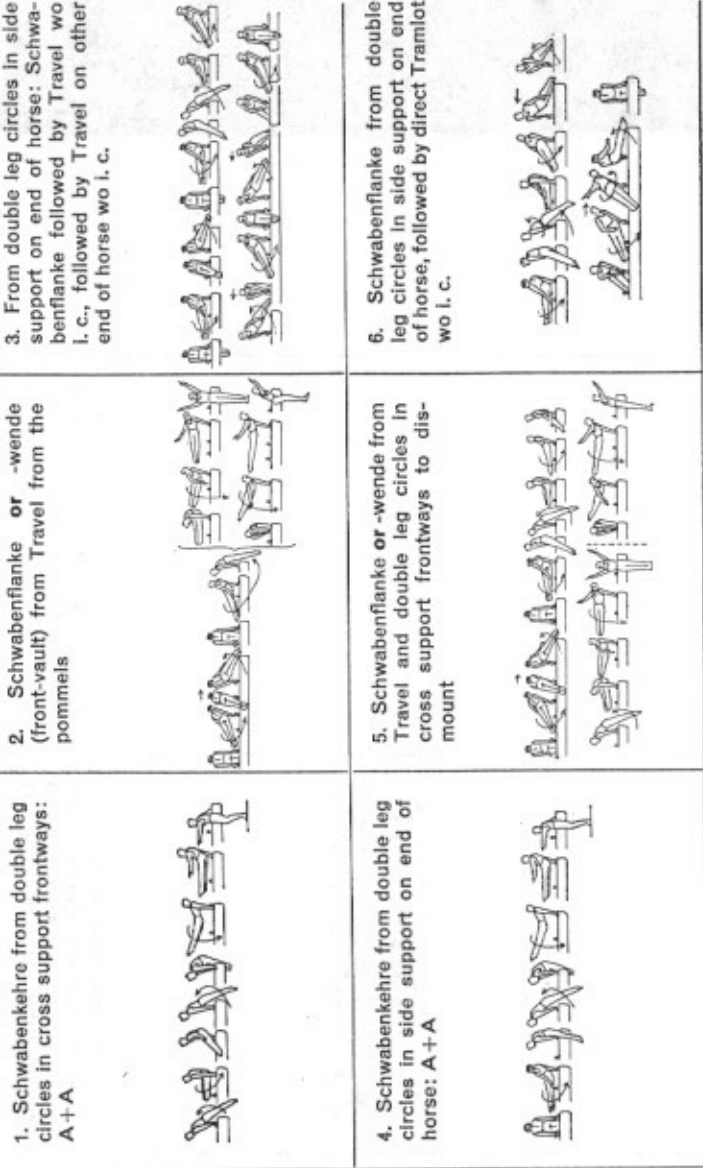 1. Schwabenkehre from double leg
circles in cross support frontways:
A + A
2. Schwabenflanke or -wende
(front-vault) from Travel from the
pommels
3. From double leg circles in side
support on end of horse: Schwa-
benflanke followed by Travel wo
i. c., followed by Travel on other
end of horse wo i. c.
4. Schwabenkehre from double leg
circles in side support on end of
horse: A + A
5. Schwabenflanke or -wende from
Travel and double leg circles in
cross support frontways to dis-
mount
6. Schwabenflanke from double
leg circles in side support on end
of horse, followed by direct Tramlot
wo i. c.